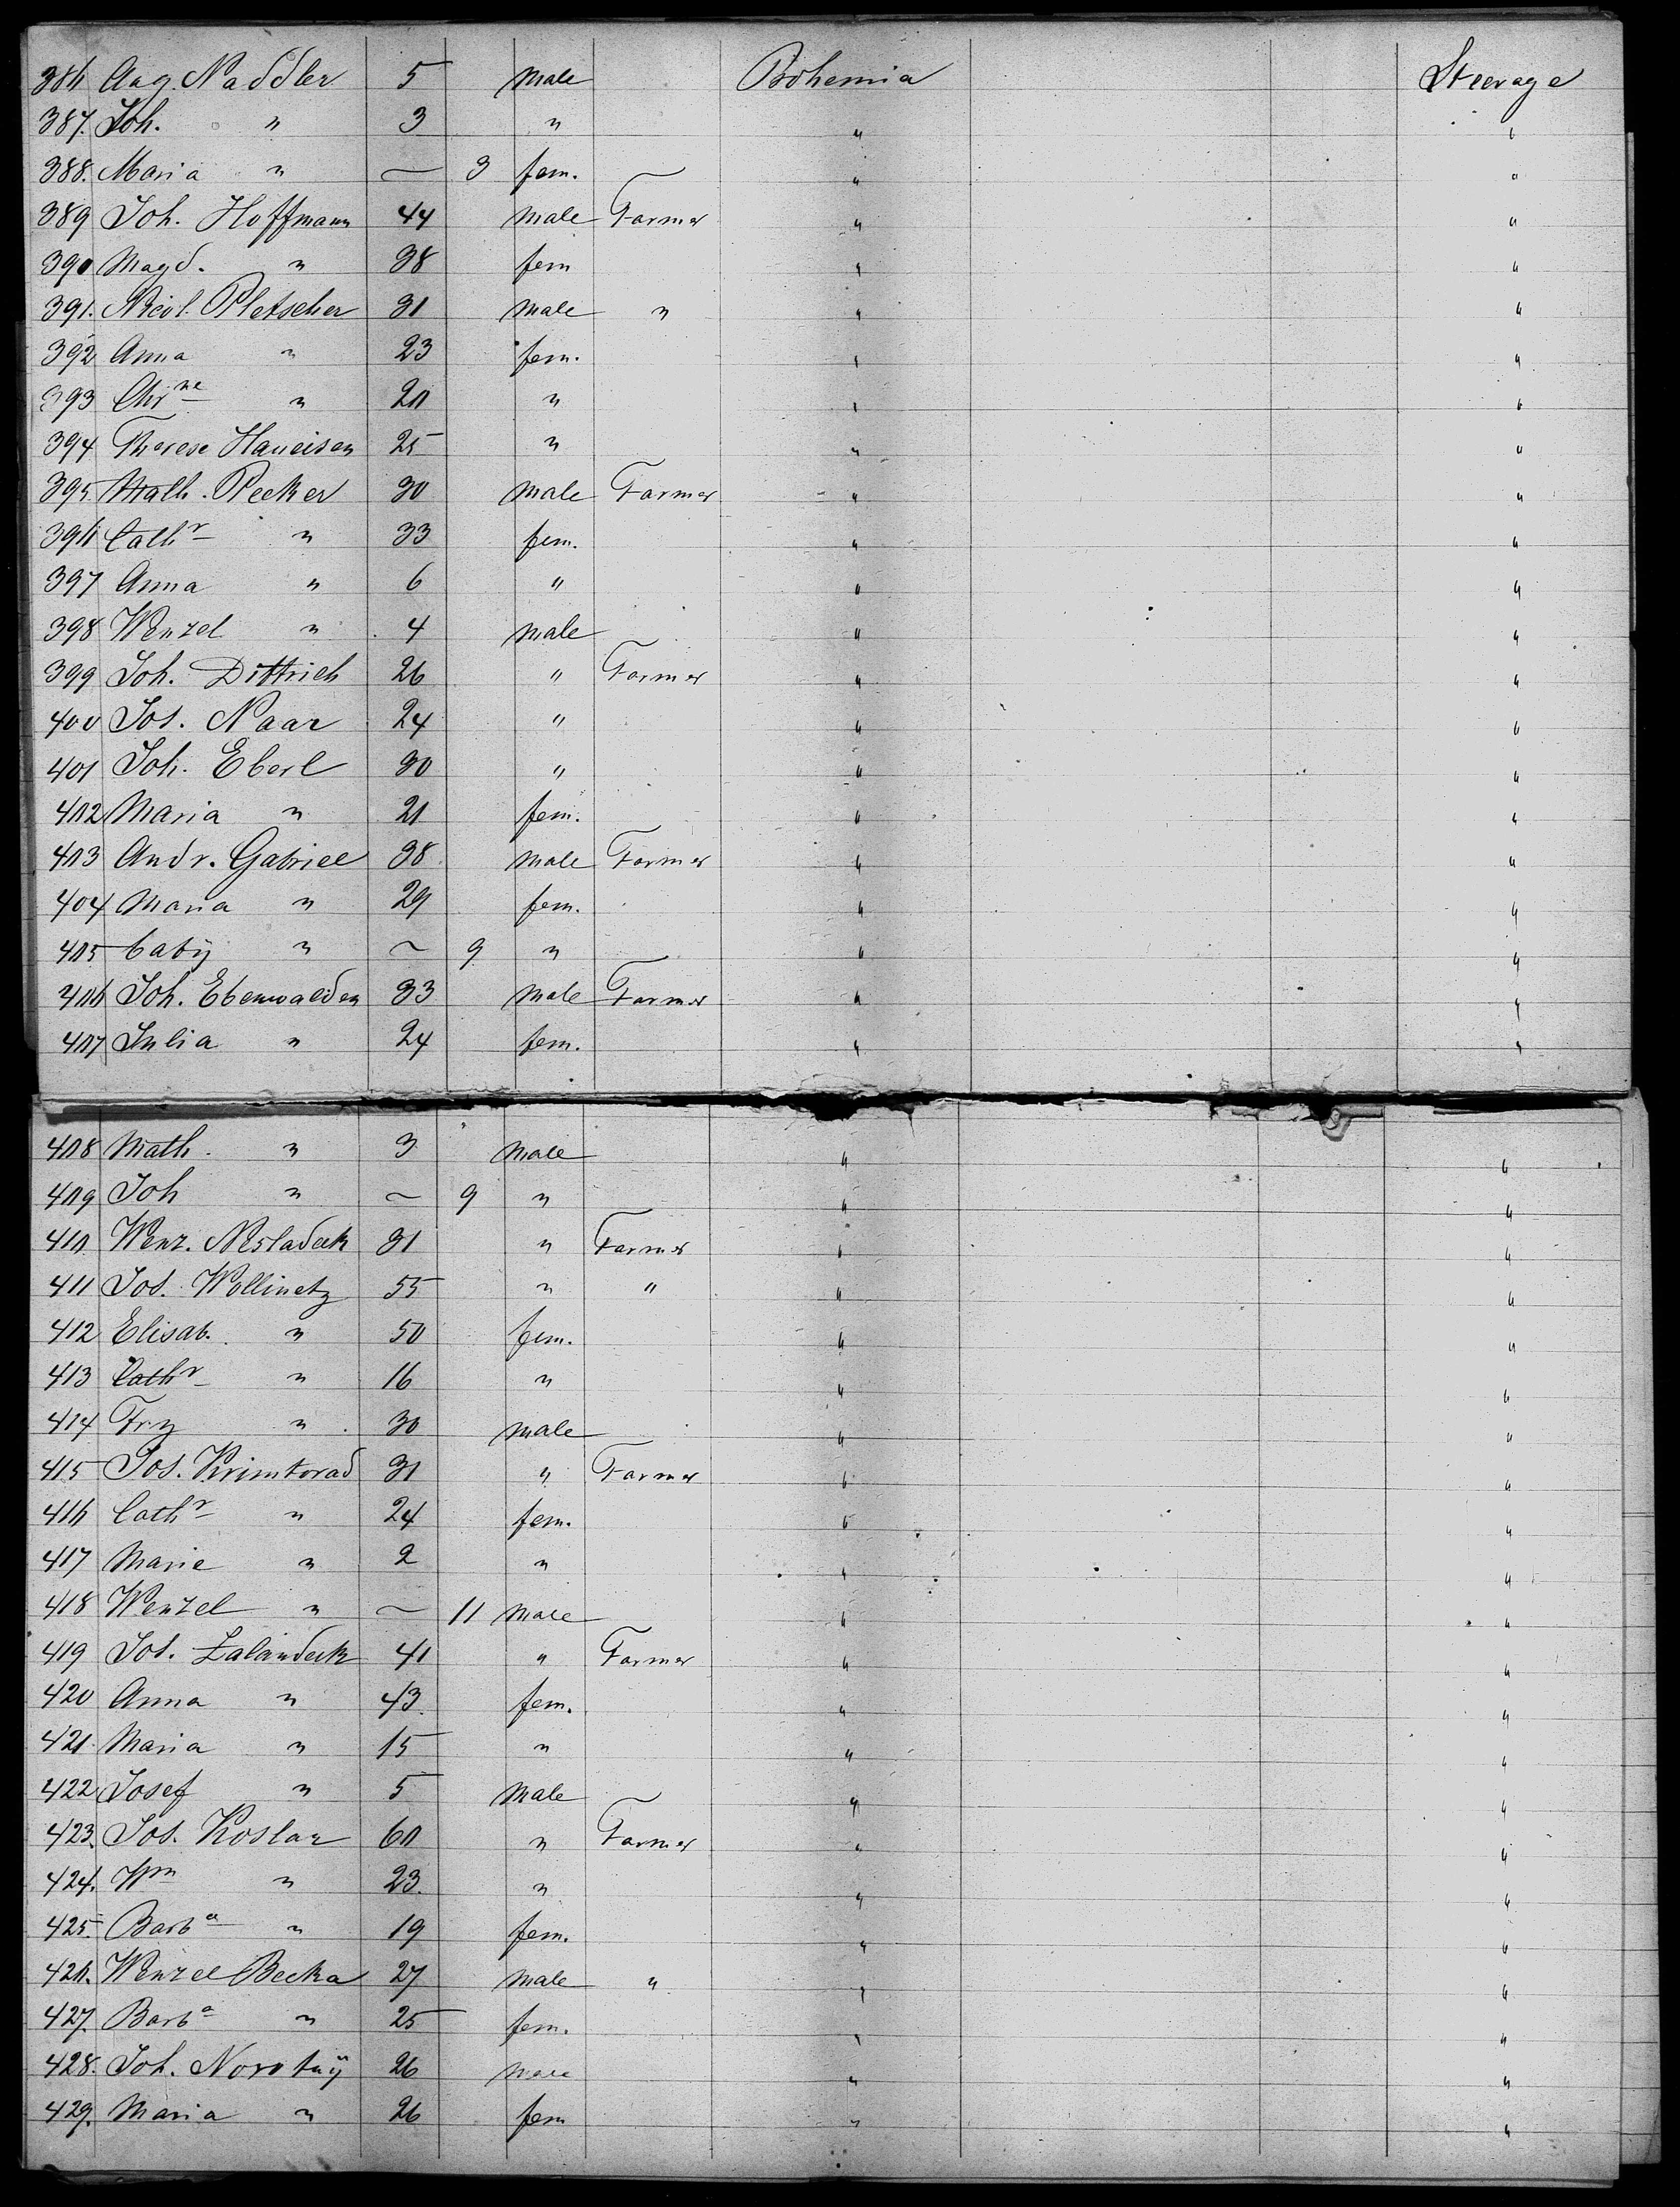 386 Aug. Naddler 5 male Bohemia Steerage
387. Joh. " 3 " " "
388. Maria " — 3 fem. " "
389 Joh. Hoffmann 44 male Farmer " "
390 Magd. " 38 fem " "
391. Nicol. Pletscher 31 male " " "
392 Anna " 23 fem. " "
393 Chrne " 20 " " "
394 Therese Haueisen 25 " " "
395 Math. Pecker 30 male Farmer " "
396 Cathr " 33 fem. " "
397 Anna " 6 " " "
398 Wenzel " 4 male " "
399 Joh. Dittrich 26 " Farmer " "
400 Jos. Naar 24 " " "
401 Joh. Eberl 30 " " "
402 Maria " 21 fem. " "
403 Andr. Gabriel 38 male Farmer " "
404 Maria " 29 fem. " "
405 baby " ~ 9 " " "
406 Joh. Ebenwalden 33 male Farmer " "
407 Julia " 24 fem. " "
408 Math. " 3 male " "
409 Joh " ~ 9 " " "
410 Wenz. Nesladeck 31 " Farmer " "
411 Jos. Wollinetz 55 " " " "
412 Elisab. " 50 fem. " "
413 Cathr " 16 " " "
414 Frz " 30 male " "
415 Jos. Krimtorad 31 " Farmer " "
416 Cathr " 24 fem. " "
417 Marie " 2 " " "
418 Wenzel " ~ 11 male " "
419 Jos. Zalaudeck 41 " Farmer " "
420 Anna " 43. fem. " "
421 Maria " 15 " " "
422 Josef " 5 male " "
423. Jos. Koslar 60 " Farmer " "
424. Wm " 23. " " "
425. Barba " 19 fem. " "
426. Wenzel Becka 27 male " " "
427. Barba " 25 fem. " "
428. Joh. Novotny 26 male " "
429. Maria " 26 fem " "